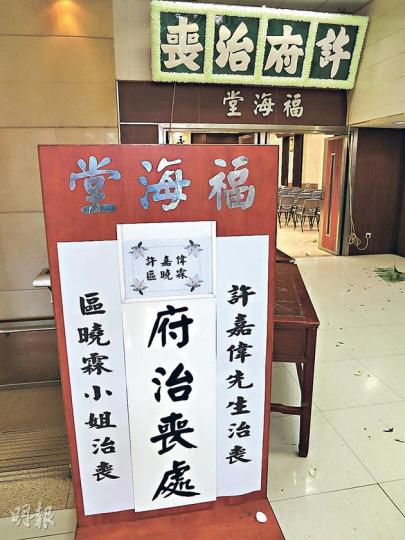 許府治喪
福海堂
福海堂
許嘉偉
區曉霖
府治喪處
許嘉偉先生治喪
區曉霖小姐治喪
明報